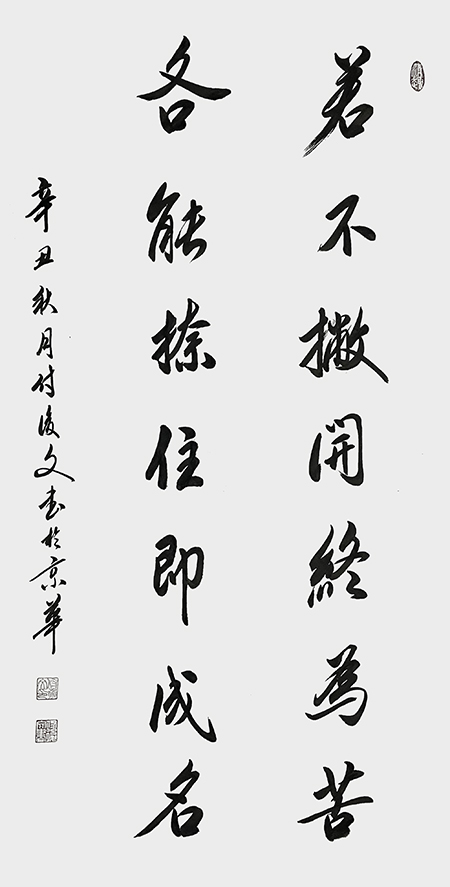 若不撇開終為苦
各能捺住即成名
辛丑秋月付俊文書於京華